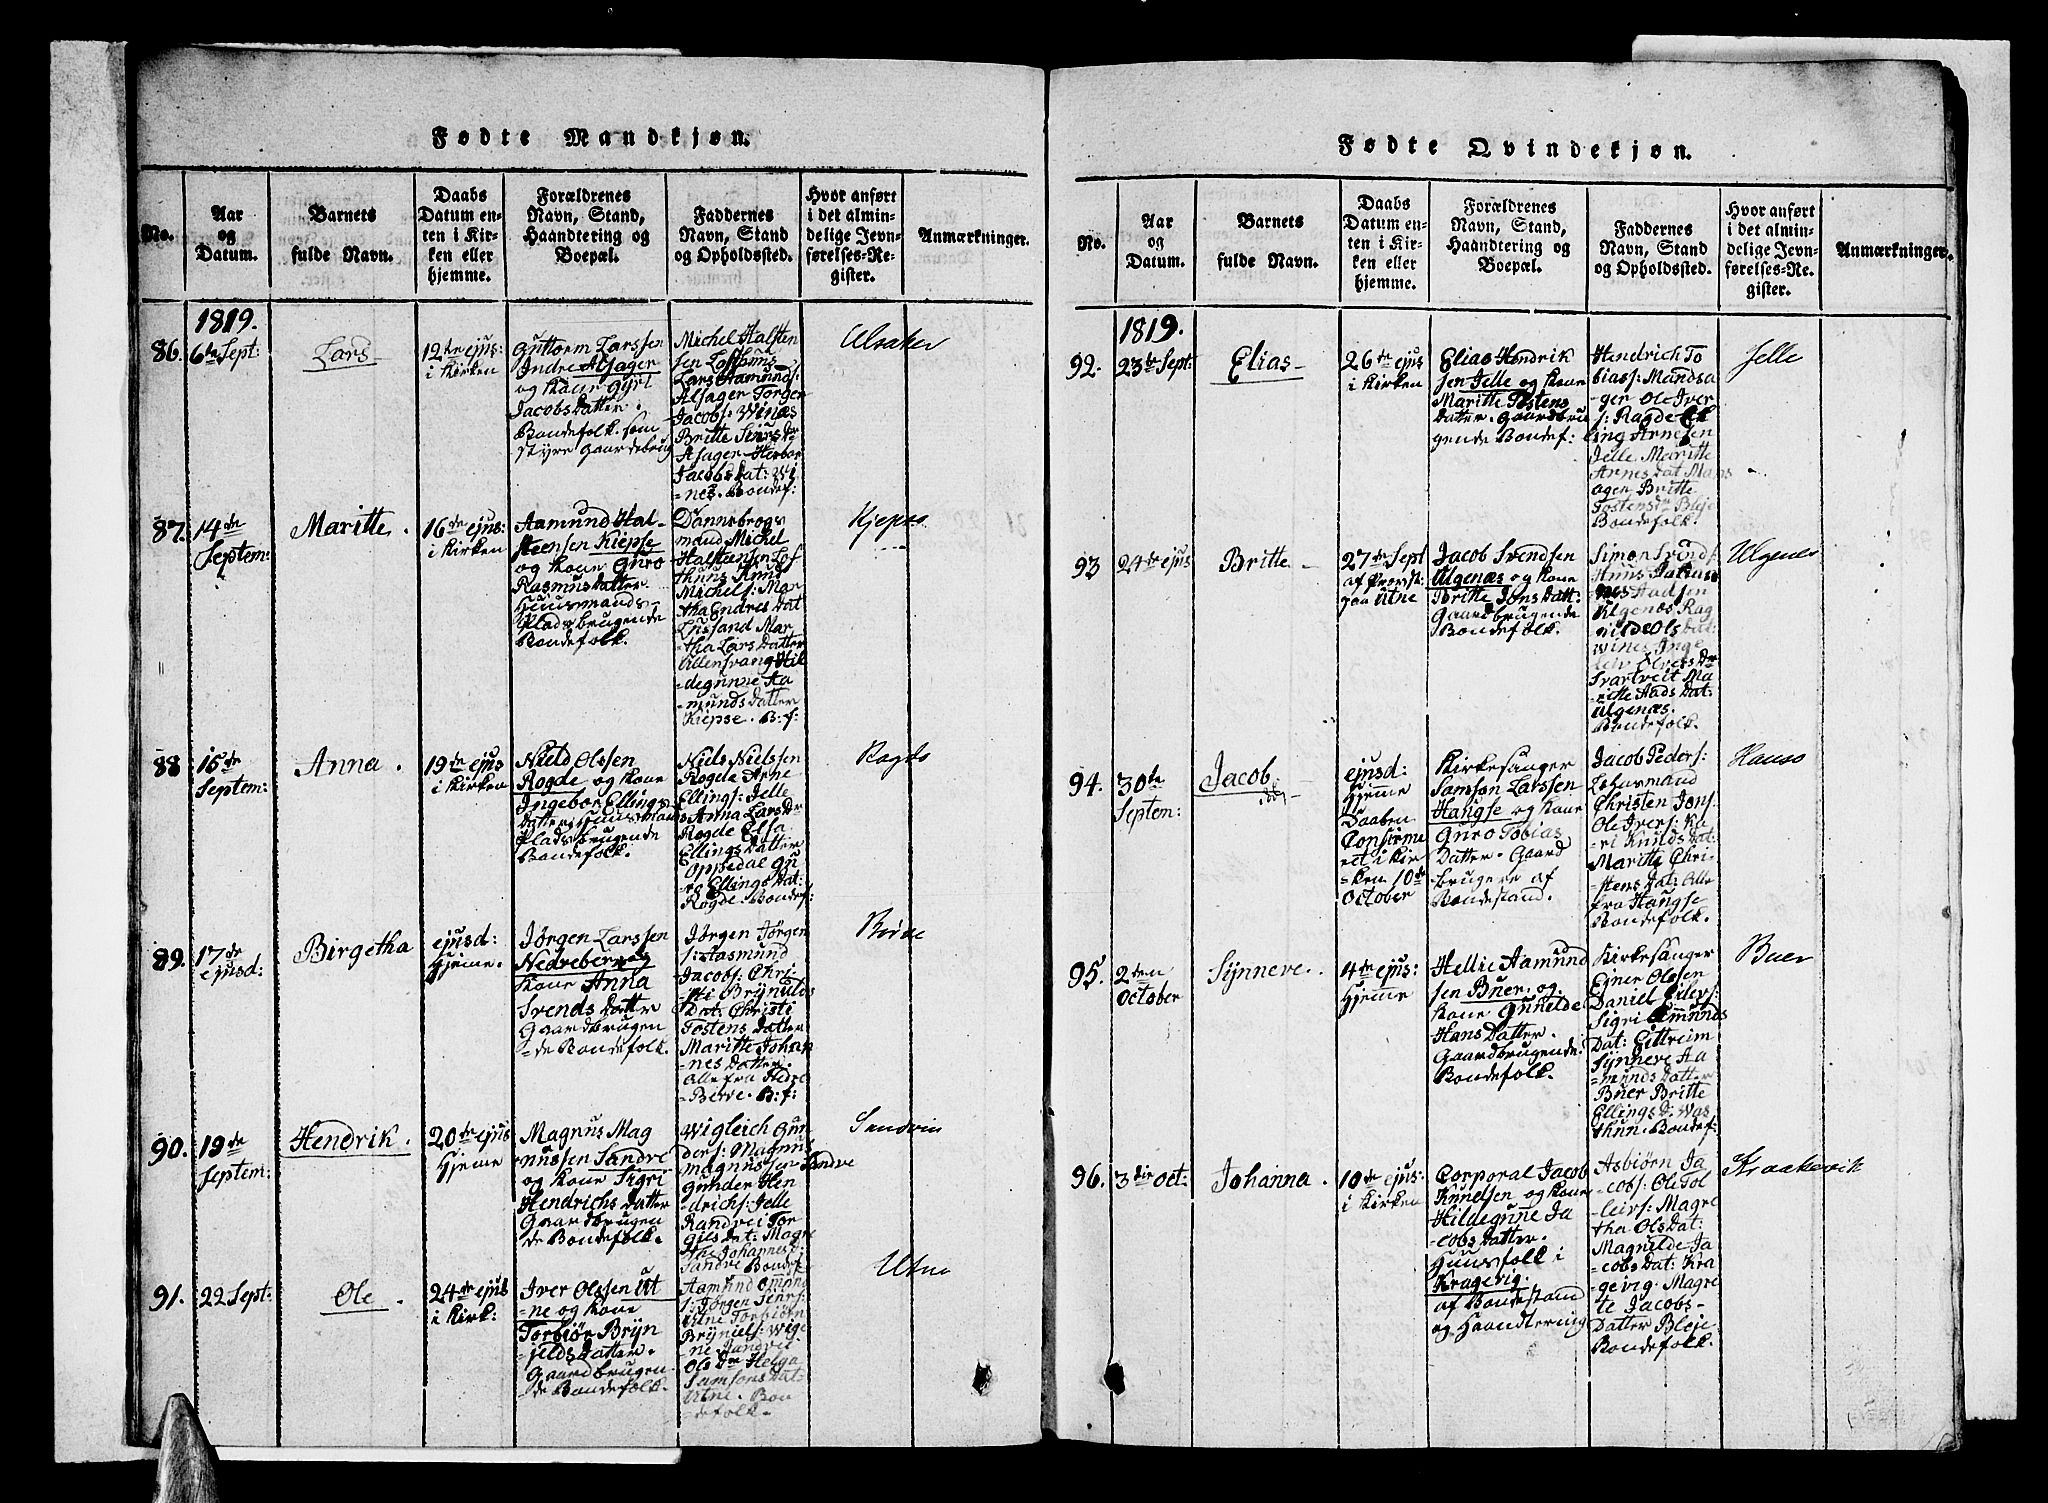 Fødte Mandkjøn.
No.
Aar
og
Datum.
Barnets
fulde Navn.
Daabs
Datum en-
ten i Kir-
ken eller
hjemme.
Forældrenes
Navn, Stand,
Haandtering og
Boepæl.
Faddernes
Navn, Stand
og Opholdssted.
Hvor anført
i det almin-
delige Jevn-
førelses-Re-
gister.
Anmærkninger.
1819.
86.
6te Sept:
Lars
12te ejus:
i Kirken
Guttorm Larssen
Indre Alsager
og Kone Gyri
Jacobs Datter.
Bondefolk som
styre Gaardsbrug
Michel Halsten
sen Lofthuus
Lars Aamunds:
Alsager Torger
Jacobs: Winæs
Britte Siurs Dr
Alsager Herbor
Jacobs Dat: Wi
-nes. Bondef:
Alsaker
87.
14de
Septem:
Maritte.
16de ejus:
i Kirken
Aamund Hal-
steensen Kiepse
og Kone Guro
Rasmus Datter
Huusmands-
Plads brugende
Bondefolk.
Dannebrogs
mand Michel
Halsteensen Lof
thuus Knud
Michels: Mar
tha Endres Dat
Lussand Mar
-tha Lars Datter
Ullensvang Hil
-degunne Aa
-munds Datter
Kiepse. B: f:
Kjepso
88
15de
Septem:
Anna.
19de ejus
i Kirken
Nield Olssen
Rogde og Kone
Ingebor Ellings
Datter, Huusmans
Plads brugende
Bondefolk.
Niels Nielssen
Rogde Arne
Ellings: Jelle
Anna Lars Dr
Rogde Elsa
Ellings Datter
Oppedal Gu
ro Ellings Dat:
Rogde. Bondef:
Ragde
89.
17de
ejusd:
Birgetha
ejusd:
Hjeme.
Jørgen Larssen
Nedreberve og
Kone Anna
Svends Datter
Gaardbrugen
-de Bondefolk.
Jørgen Jørgen
s: Aasmund
Jacobs: Chri-
sti Brynilds
Dat: Christi
Tostens Datter
Maritte Johan
nes Datter.
Alle fra Nedre
Berve. B: f:
Børve
90.
19de
Septem:
Hendrik.
20de ejus
Hjeme
Magnus Mag
nussen Sandve
og Kone Sigri
Hendrichs Datter
Gaardbrugen
de Bondefolk.
Wigleich Gun
ders: Magnus
Magnussen Sandve
Gunder Hen
drichs: Jelle
Randvei Tor
gils dat: Magre
tha Johannes:
Sandve Bondef
Sandvin
91.
22 Sept:
Ole.
24de ejus
i Kirk:
Iver Olssen Ut
-ne og Kone
Torbiør Bryn
-jilds Datter.
Gaardbrugen
-de Bondefolk.
Aamund Omund
s: Jørgen Jens s:
Utne Torbiørn
Bryniels: Wige
-ne Randvei
Ols Dr Helga
Samsons Dat:
Utne. Bon
-defolk.
Utne
Fødte Qvindekjøn.
No.
Aar
og
Datum.
Barnets
fulde Navn.
Daabs
Datum en-
ten i Kir-
ken eller
hjemme.
Forældrenes
Navn, Stand,
Haandtering og
Boepæl.
Faddernes
Navn, Stand
og Opholdssted.
Hvor anført
i det almin-
delige Jevn-
førelses-Re-
gister.
Anmærkninger.
1819.
92.
23de Sept:
Elias
26de ejus
i Kirken
Elias Hendrik
sen Jelle og Kone
Maritte Tostens
Datter. Gaardbru
gende Bondef:
Hendrich To
bias s: Mandsa
ger Ole Iver
s: Ragde El
ling Arnesen
Jelle Maritte
Arnes dat Mans
ogen Britte
Tostens dr Bleje
Bondefolk.
Jelle
93
24de ejus
Britte
27de Sept
Jacob Svendsen
Ulgenæs og Kone
Britte Jons Datt:
Gaardbrugende
Bondefolk.
Simon Svends:
Ulgenæs Rag
nilde Ols dat:
Wines Inge
leiv Olvers Dr
Svartveit Ma
ritte Aads Dat:
Ulgenæs.
Bondefolk.
Ulgenes
94.
30te
Septem:
Jacob
ejusd:
Hjeme
Daaben
Confirme
ret i Kir
-ken 10de
October
Kirkesanger
Samson Larssen
Haugse og Kone
Guro Tobias
Datter. Gaard
brugere af
Bondestand.
Jacob Peders:
Lehnsmand
Christen Jons:
Ole Ivers: Ka
ri Knuds Dat:
Maritte Chri-
stens Dat: Alle
fra Haugse
Bondefolk.
Hauso
95.
2den
October
Synneve.
4de ejus:
Hjeme
Hellie Aamund
sen Buer og
Kone Gunilde
Hans Datter.
Gaardbrugende
Bondefolk.
Kirkesanger
Ejner Olssen
Daniel Eilevs:
Sigri Amunds
Dat: Eittreim
Synneve Aa
-munds Datter
Buer Britte
Ellings D. Was
thun. Bondef:
Buer
96.
3die Oct:
Johanna.
10de ejus:
i Kirken
Corporal Jacob
Knudsen og Kone
Hildegunne Ja
-cobs Datter.
Huusfolk i
Kragevig.
af Bondestand
og Haandtering
Asbiørn Ja
-cobs: Ole Tol
-leivs: Magre
tha Ols Dat:
Magnilde Ja
-cobs Dat: Kra
gevig. Magre
te Jacobs-
Datter Bleje
Bondefolk.
Kraakevik